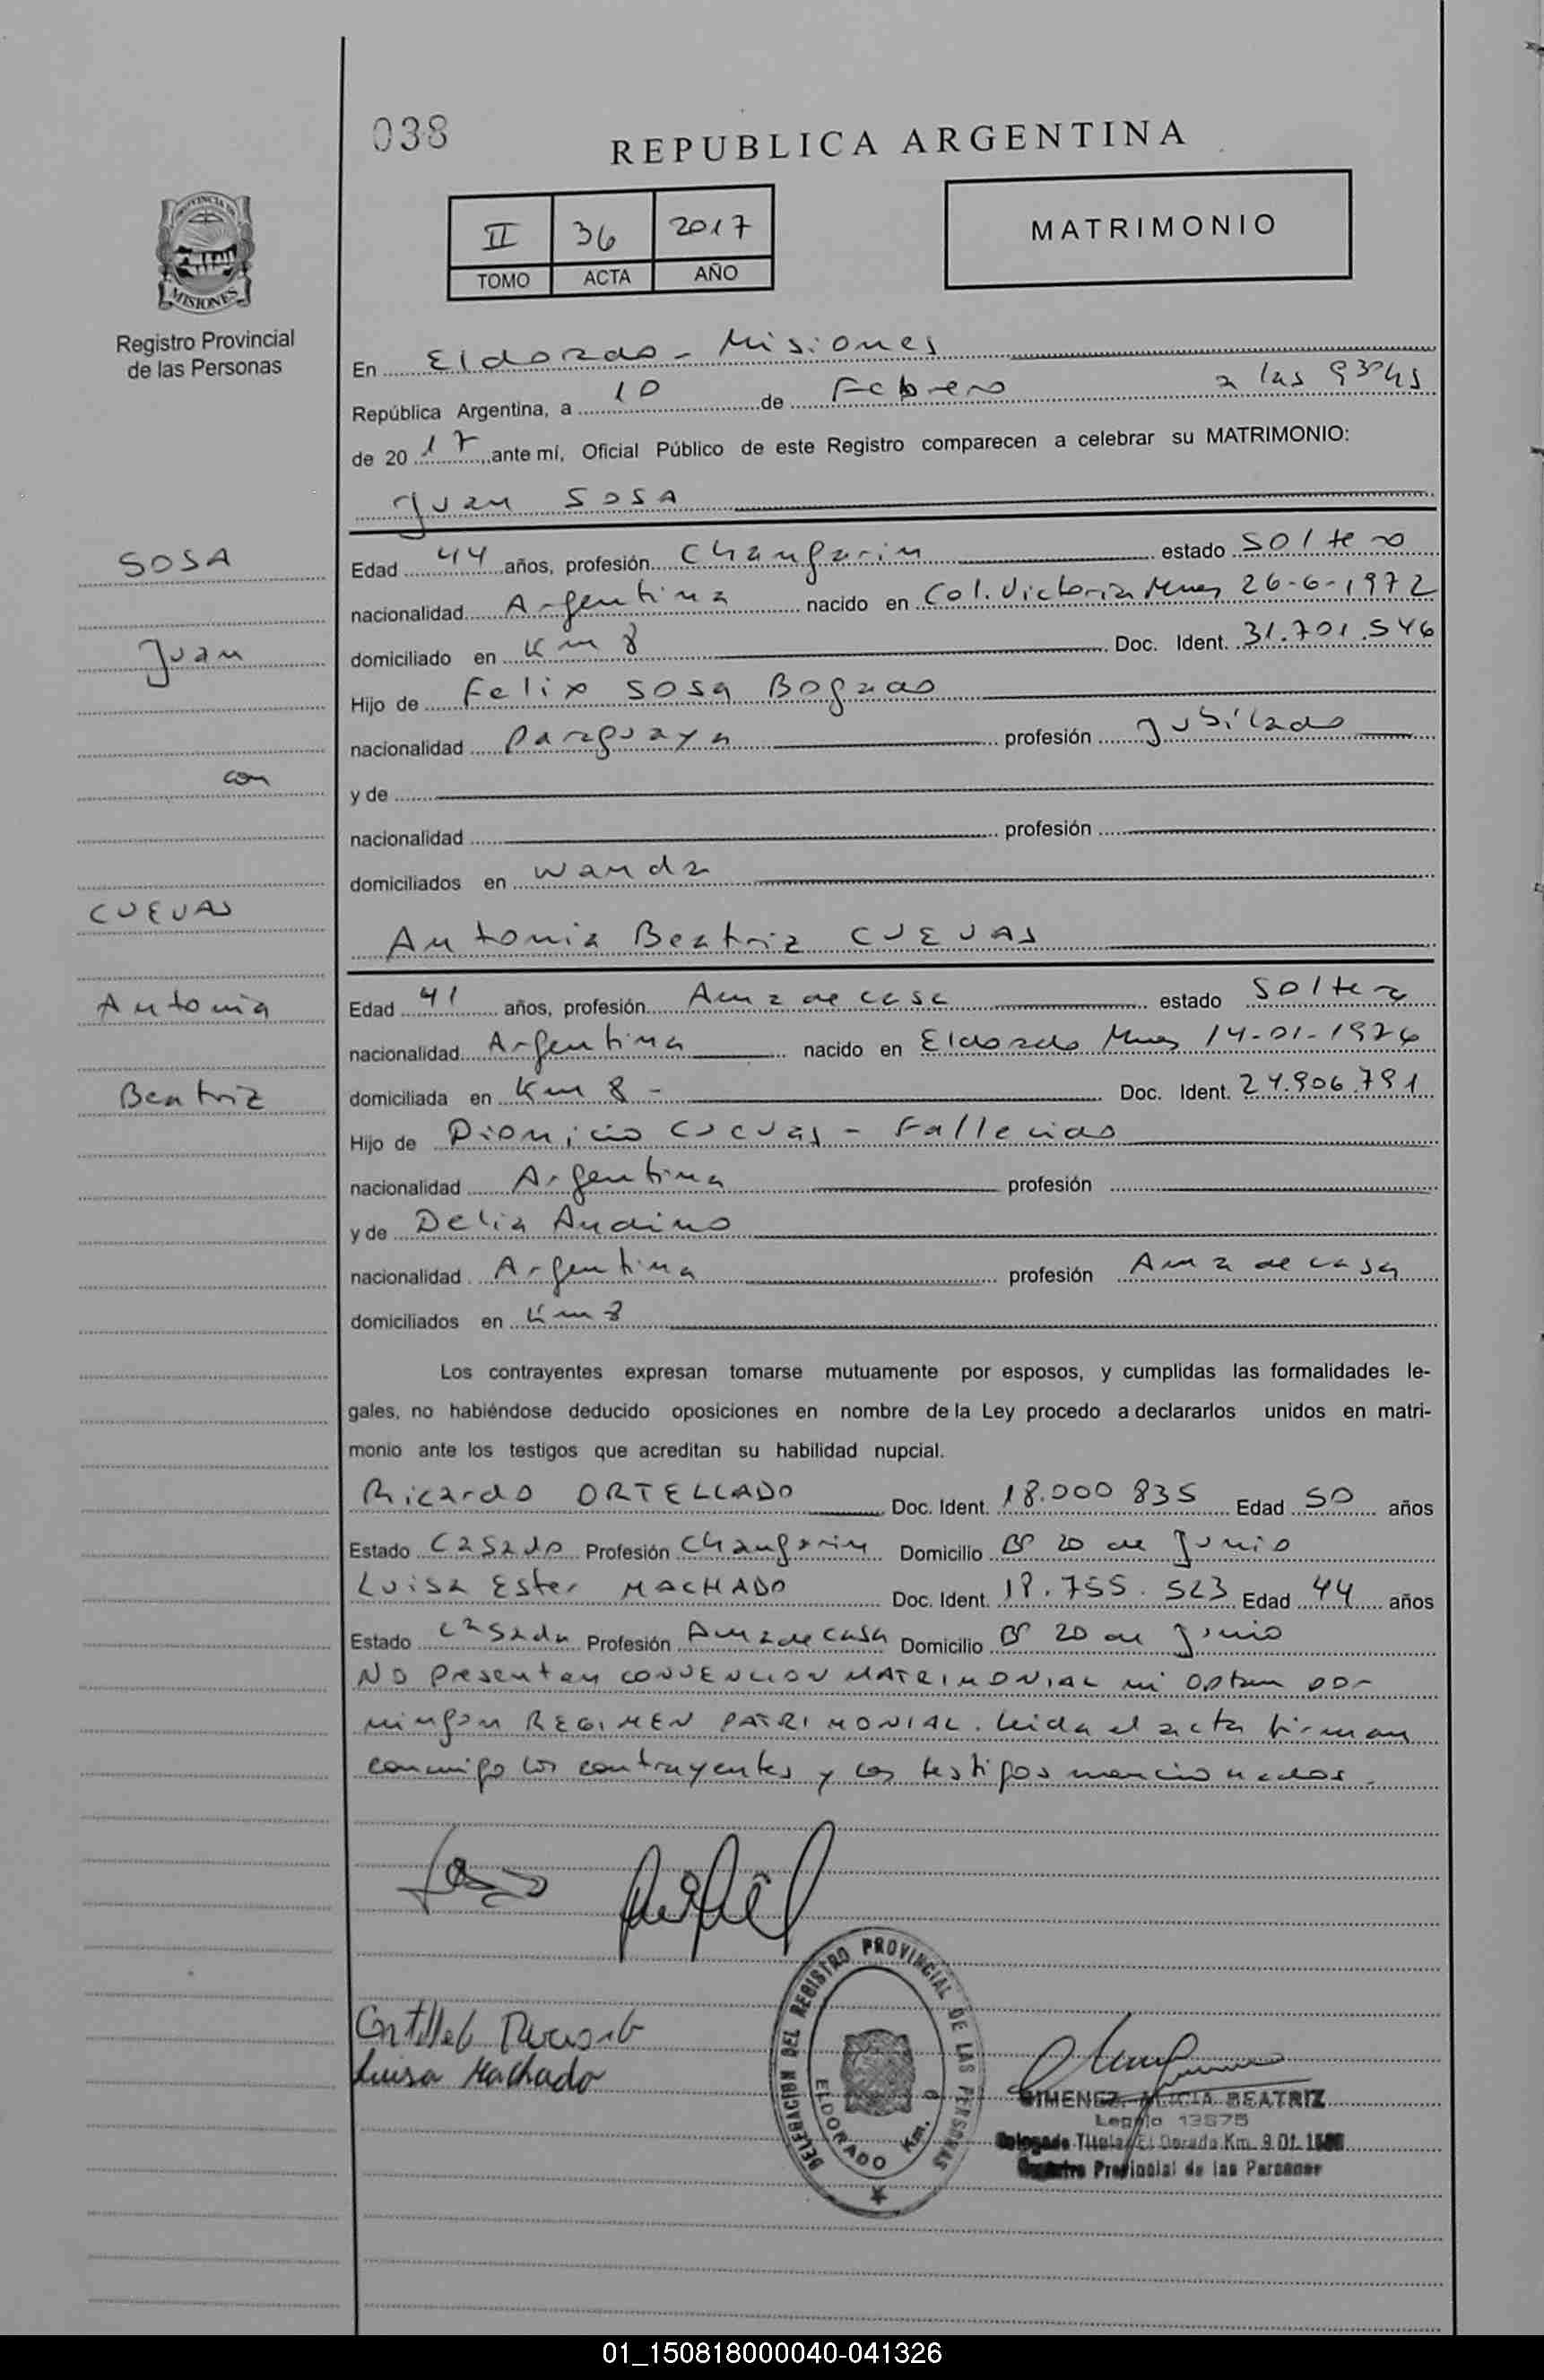 038
REPUBLICA ARGENTINA
II 36 2017
TOMO ACTA AÑO
MATRIMONIO
PROVINCIA DE
MISIONES
Registro Provincial
de las Personas
En Eldorado - Misiones
República Argentina, a 10 de Febrero a las 930hs
de 2017, ante mí, Oficial Público de este Registro comparecen a celebrar su MATRIMONIO:
Juan SOSA
SOSA
Juan
con
CUEVAS
Antonia
Beatriz
Edad 44 años, profesión Changarin estado Soltero
nacionalidad Argentina nacido en Col. Victoria Mnes 26-6-1972
domiciliado en Km 8 Doc. Ident. 31.701.546
Hijo de Felix SOSA Bogado
nacionalidad Paraguaya profesión Jubilado
y de
nacionalidad profesión
domiciliados en Wanda
Antonia Beatriz CUEVAS
Edad 41 años, profesión Ama de casa estado Soltera
nacionalidad Argentina nacido en Eldorado Mnes 14-01-1976
domiciliada en Km 8 - Doc. Ident. 24.906.791
Hijo de Dionicio Cuevas - Fallecido
nacionalidad Argentina profesión
y de Delia Andino
nacionalidad Argentina profesión Ama de casa
domiciliados en Km 8
Los contrayentes expresan tomarse mutuamente por esposos, y cumplidas las formalidades le-
gales, no habiéndose deducido oposiciones en nombre de la Ley procedo a declararlos unidos en matri-
monio ante los testigos que acreditan su habilidad nupcial.
Ricardo ORTELLADO Doc. Ident. 18.000 835 Edad 50 años
Estado Casado Profesión Changarin Domicilio Bº 20 de Junio
Luisa Ester MACHADO Doc. Ident. 18.755.523 Edad 44 años
Estado Casada Profesión Ama de casa Domicilio Bº 20 de Junio
No presentan CONVENCION MATRIMONIAL ni optan por
ningun REGIMEN PATRIMONIAL. Leida el acta firman
conmigo los contrayentes y los testigos mencionados.
Luisa Machado
DELEGACION DEL REGISTRO PROVINCIAL DE LAS PERSONAS
ELDORADO Km.
GIMENEZ, ALICIA BEATRIZ
Legajo 13675
Delegada Titular El Dorado Km. 9
Registro Provincial de las Personas
01_150818000040-041326